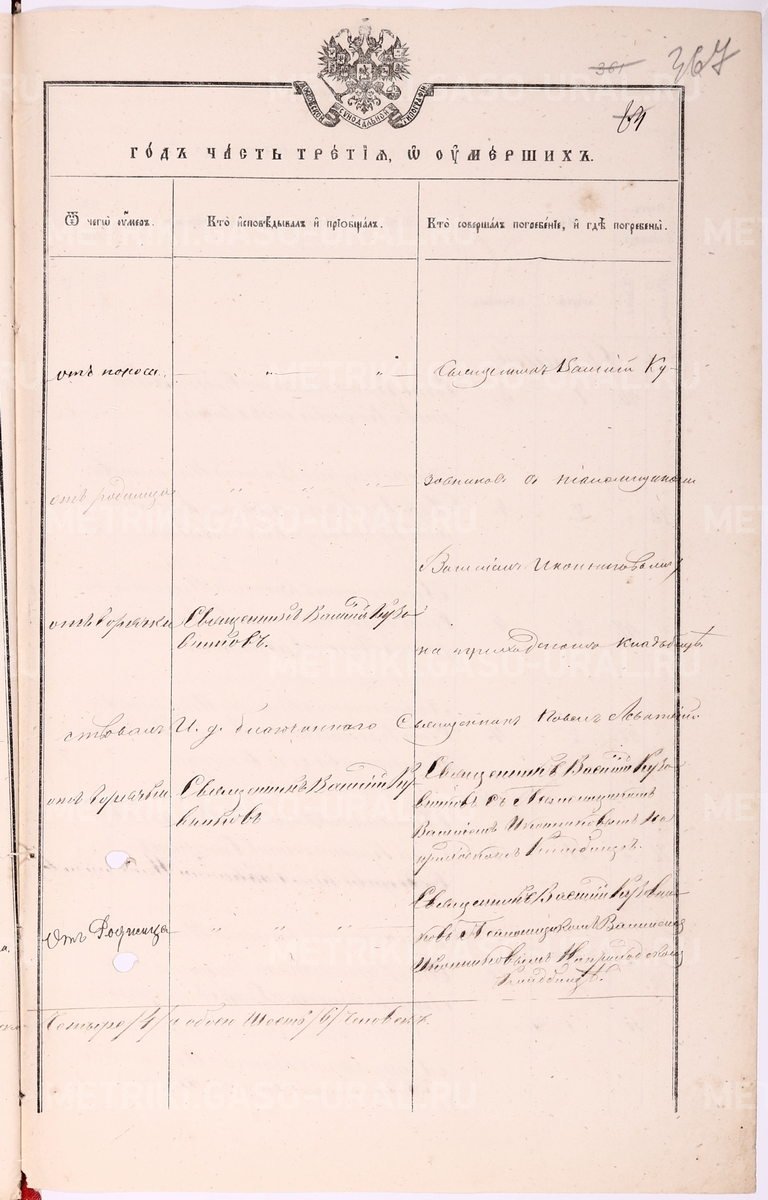 361
367
МОСКОВСКОЙ СѴНОДАЛЬНОЙ ТИПОГРАФІИ
64
ГО́ДЪ ЧА́СТЬ ТРЕ́ТІѦ, Ѡ҆ ОУ҆МЕ́РШИХЪ.
Ѿ чегѡ̀ оу҆́меръ.
Кто̀ и҆сповѣ́дывалъ и҆ прїѡбща́лъ.
Кто̀ соверша́лъ погребе́нїе, и҆ гдѣ̀ погребены̀.
отъ поноса
" "
Священникъ Василій Ку-
отъ родимца
" " "
зовниковъ съ псаломщикомъ
Василіемъ Иконниковымъ
отъ горячки
Священникъ Василій Кузо-
вниковъ.
на приходскомъ кладбищѣ.
И. д. благочиннаго Священникъ Павелъ
отъ горячки
Священникъ Василій Ку-
вниковъ
Священникъ Василій Кузо-
вниковъ съ Псаломщикомъ
Василіемъ Иконниковымъ на
приходскомъ кладбищѣ.
Отъ Родимца
" " "
Священникъ Василій Кузовни-
ковъ Псаломщикомъ Василіемъ
Иконниковымъ На приходскомъ
Кладбищѣ.
Четыре /4/ а обоего Шесть /6/ Человекъ.
METRIKI.GASO-URAL.RU